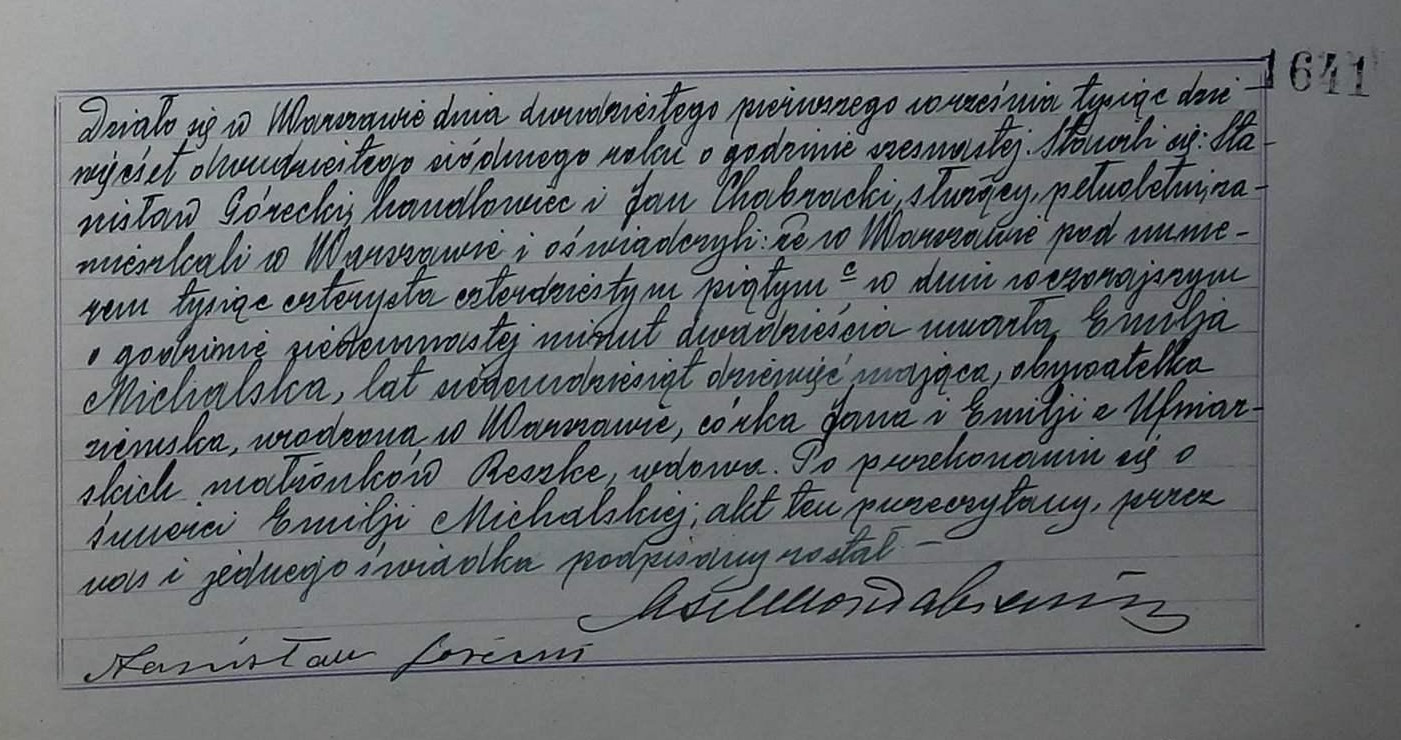 1641
Działo się w Warszawie dnia dwudziestego pierwszego września tysiąc dzie-
więćset dwudziestego siódmego roku o godzinie szesnastej. Stawili się: Sta-
nisław Górecki, handlowiec i Jan Chabracki, służący, pełnoletni, za-
mieszkali w Warszawie i oświadczyli: że w Warszawie pod nume-
rem tysiąc czterysta czterdziestym piątym c w dniu wczorajszym
o godzinie siedemnastej minut dwadzieścia umarła Emilja
Michalska, lat siedemdziesiąt dziewięć mająca, obywatelka
ziemska, urodzona w Warszawie, córka Jana i Emilji z Ufniar-
skich małżonków Reszke, wdowa. Po przekonaniu się o
śmierci Emilji Michalskiej, akt ten przeczytany, przez
nas i jednego świadka podpisany został –
Stanisław Górecki